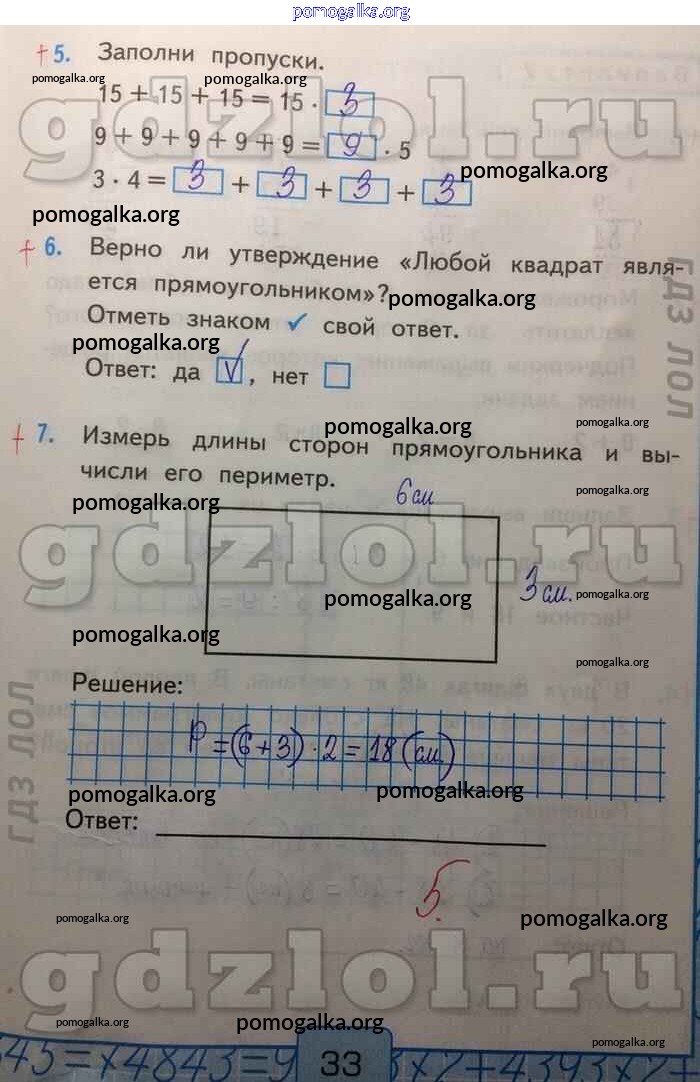 pomogalka.org
+ 5. Заполни пропуски.
pomogalka.org pomogalka.org
15 + 15 + 15 = 15 · 3
gdzlol.ru
9 + 9 + 9 + 9 + 9 = 9 · 5
pomogalka.org
3 · 4 = 3 + 3 + 3 + 3
pomogalka.org
+ 6. Верно ли утверждение «Любой квадрат явля-
ется прямоугольником»?
pomogalka.org
ГДЗ ЛОЛ
Отметь знаком ✓ свой ответ.
pomogalka.org
Ответ: да V, нет
pomogalka.org pomogalka.org
+ 7. Измерь длины сторон прямоугольника и вы-
числи его периметр.
pomogalka.org pomogalka.org
6 см
gdzlol.ru
3 см.
pomogalka.org pomogalka.org
pomogalka.org
pomogalka.org
Решение:
ГДЗ ЛОЛ
P = (6 + 3) · 2 = 18 (см.)
pomogalka.org pomogalka.org
Ответ:
5.
pomogalka.org pomogalka.org
gdzlol.ru
pomogalka.org pomogalka.org
pomogalka.org
33